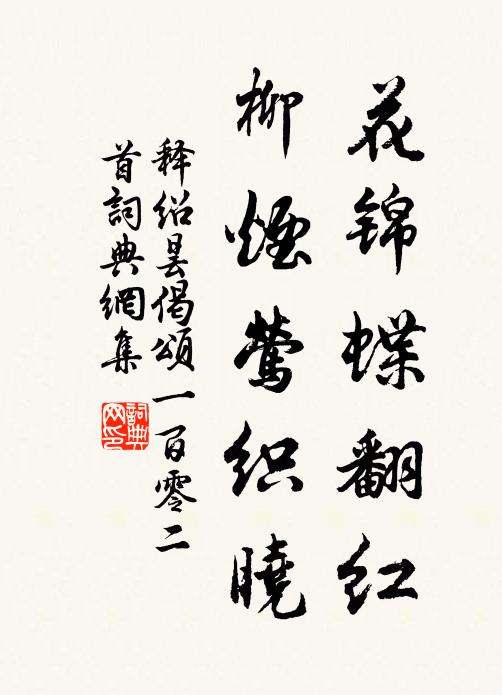 花锦蝶翻红
柳烟莺织晓
释绍昙偈頌一百零二
首詞典網集
詞典网印